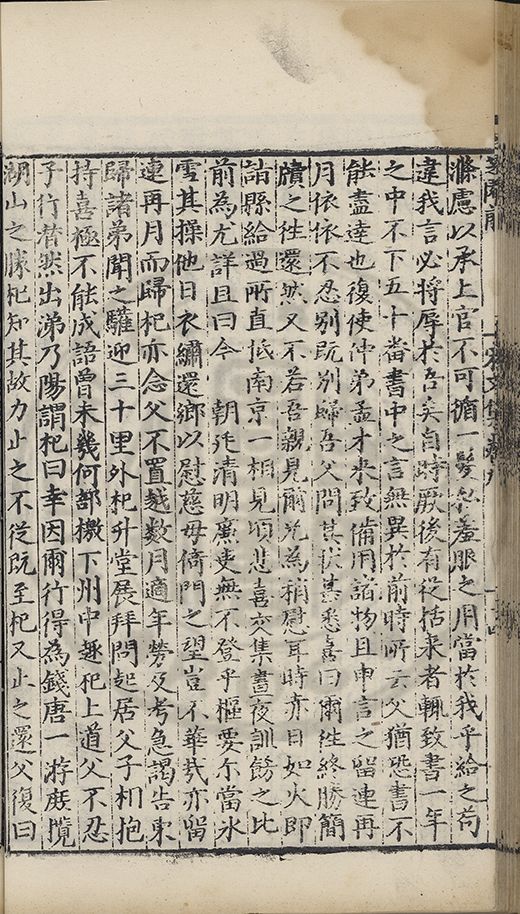 滌慮以承上官不可循一髮私羞服之用當於我乎給之苟
違我言必將辱於吾矣自時厥後有從括來者輒致書一年
之中不下五十番書中之言無異於前時所云父猶恐書不
能盡達也復使仲弟孟才來致備用諸物且申言之留連再
月依依不忍別既別歸吾父問其狀甚悉喜曰爾往終勝簡
牘之往還然又不若吾親見爾兄為稍慰耳時赤日如火即
詣縣給過所直抵南京一相見頃悲喜交集晝夜訓飭之比
前為尤詳且曰今 朝廷清明廉吏無不登乎樞要尔當氷
雪其操他日衣繡還鄉以慰慈母倚門之望豈不華㢤亦留
連再月而歸杞亦念父不置越數月適年勞及考急謁告東
歸諸弟聞之驩迎三十里外杞升堂展拜問起居父子相抱
持喜極不能成語曾未幾何部檄下州中趣杞上道父不忍
子行潸然出涕乃陽謂杞曰幸因爾行得為錢唐一游庻攬
湖山之勝杞知其故力止之不從既至杞又止之還父復曰